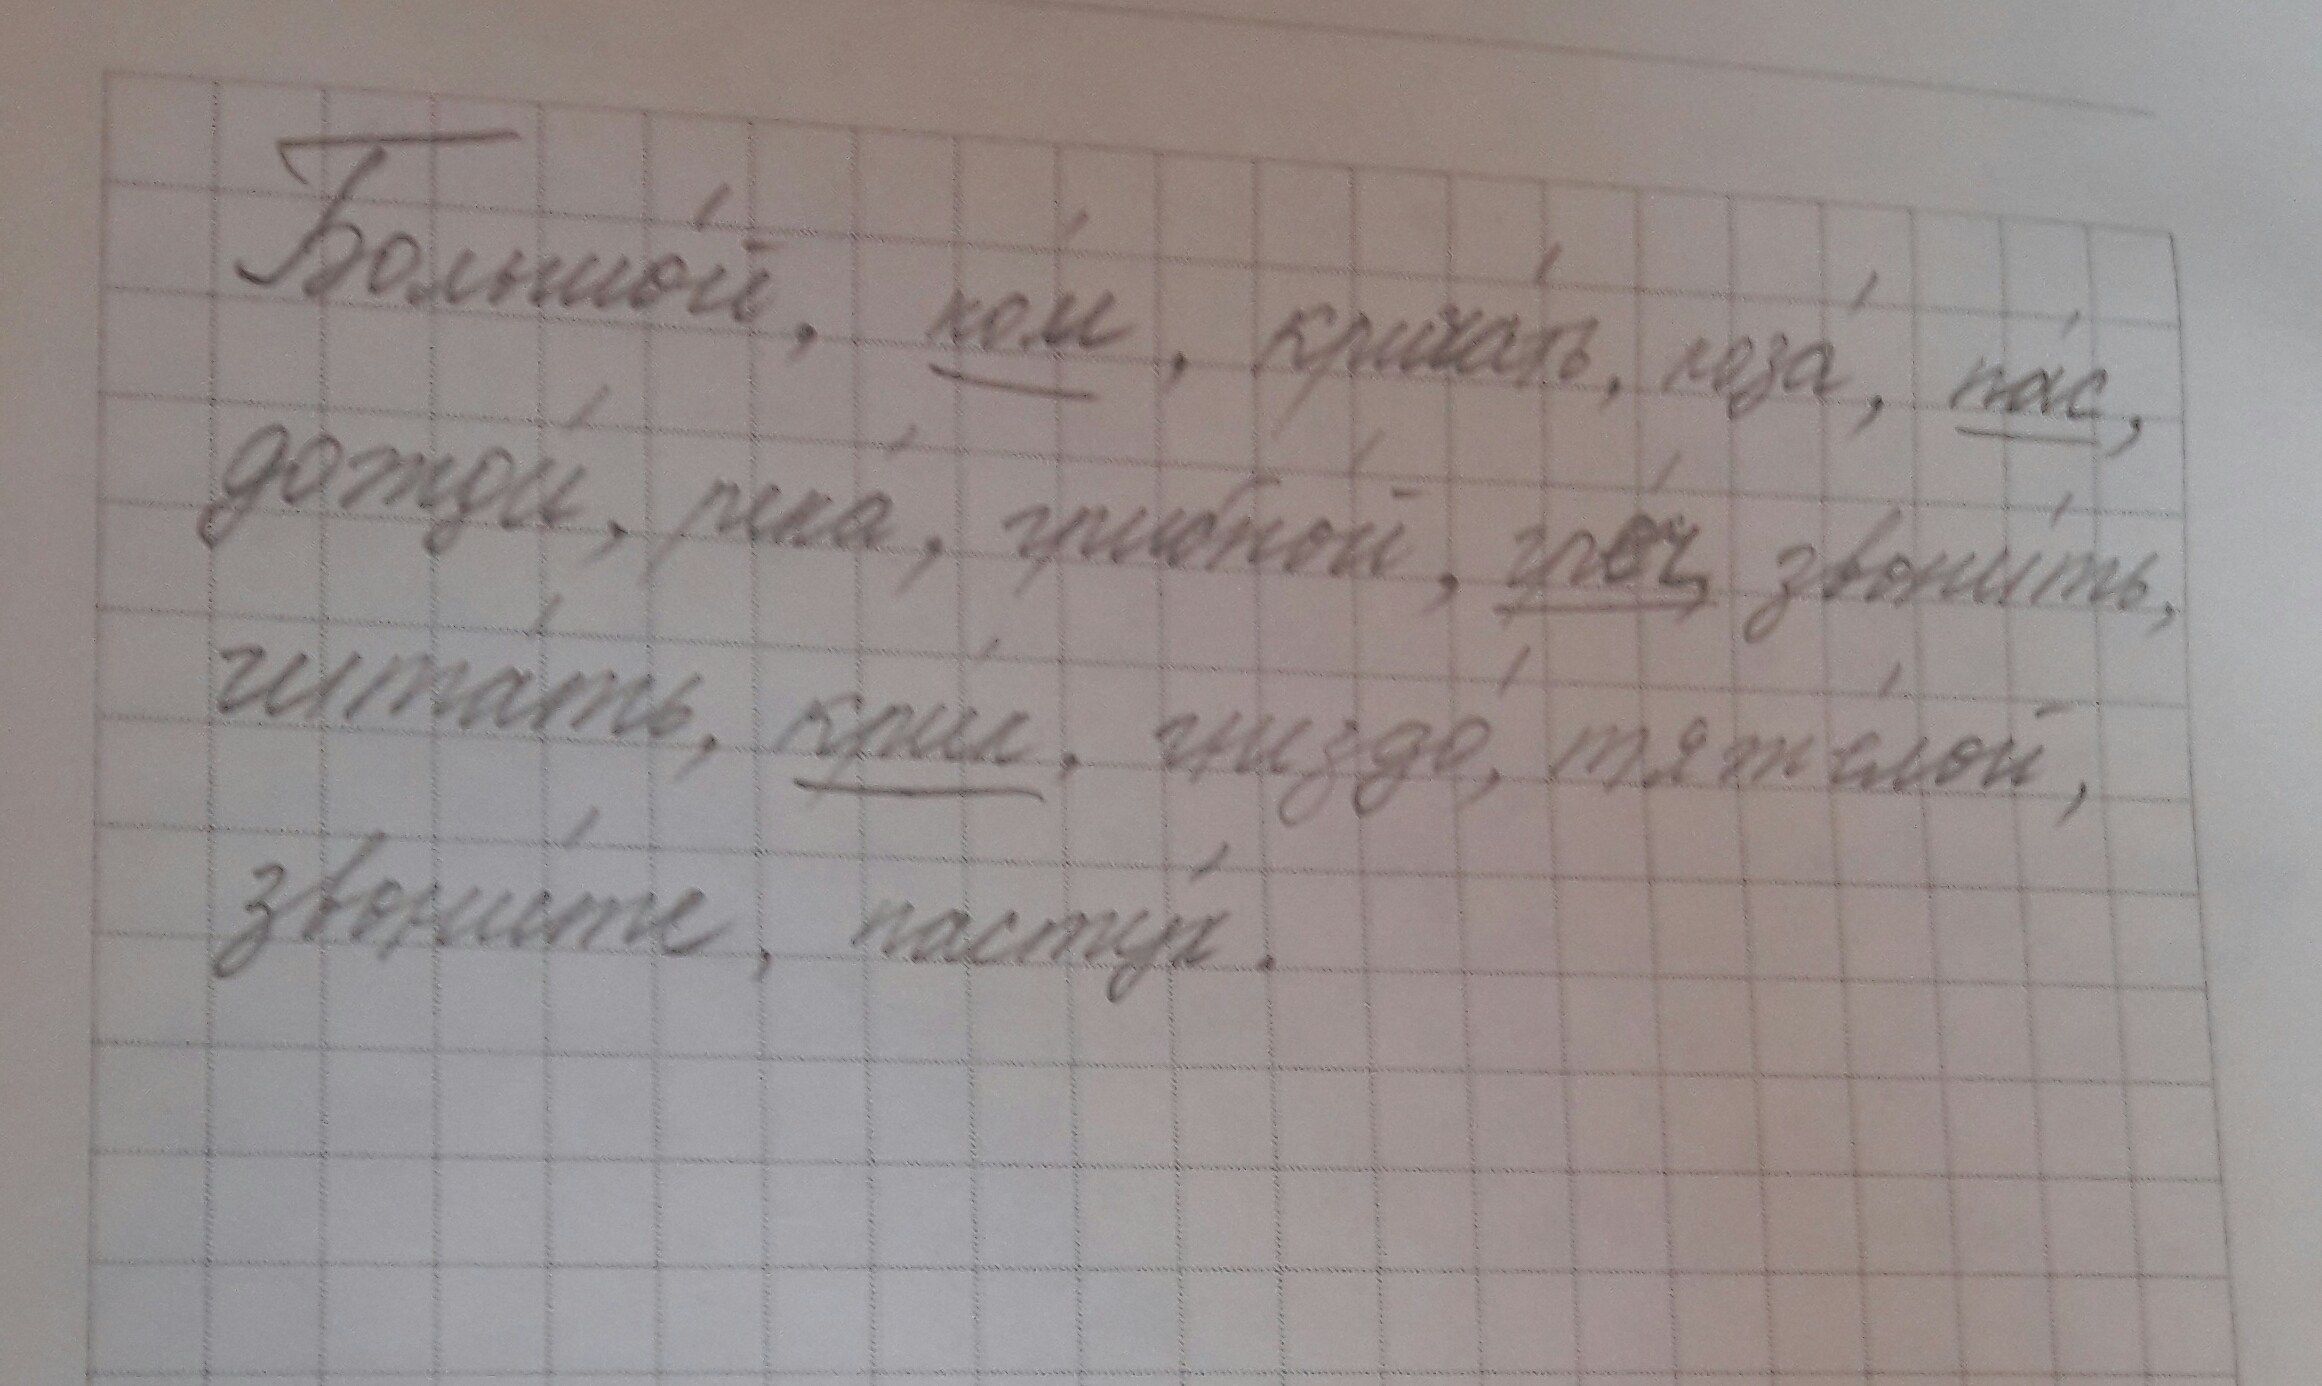 Большой, ком, кричать, коза, пас,
дожди, река, грибной, грач, звонить,
читать, крик, гнездо, тяжёлой,
звоните, пастух.